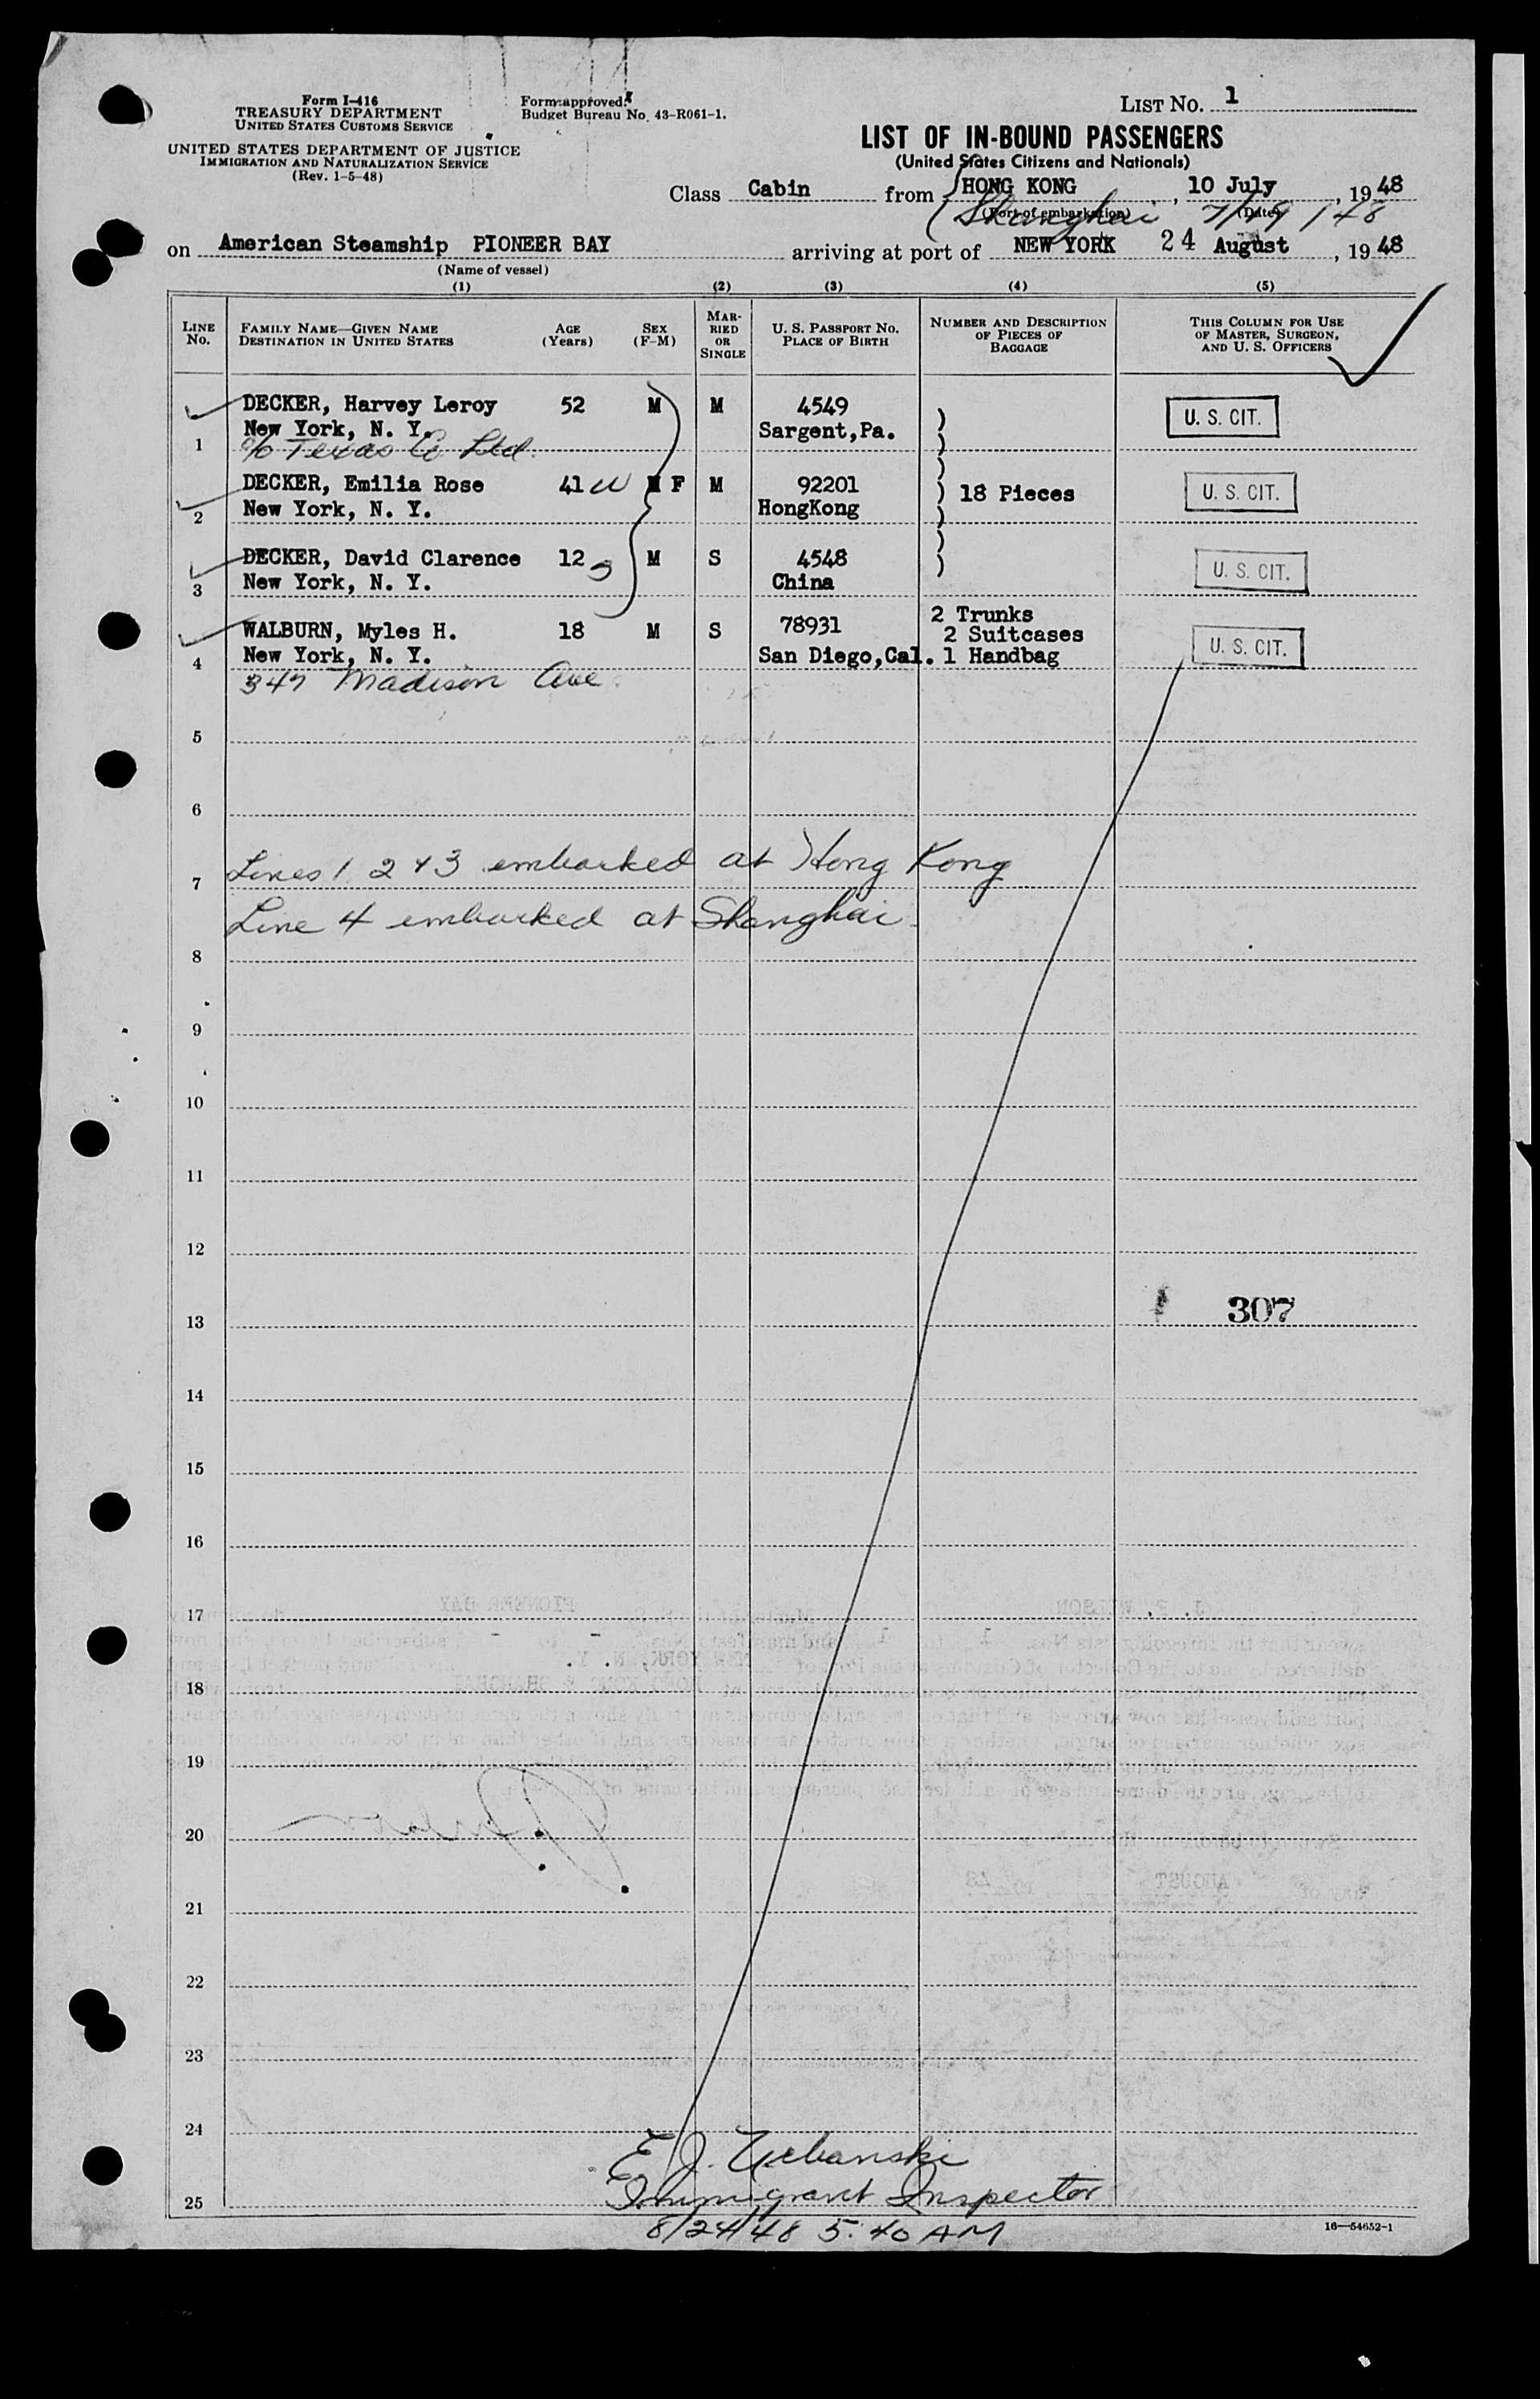 Form I-416
TREASURY DEPARTMENT
UNITED STATES CUSTOMS SERVICE
UNITED STATES DEPARTMENT OF JUSTICE
IMMIGRATION AND NATURALIZATION SERVICE
(Rev. 1-5-48)
Form approved.
Budget Bureau No. 43-R061-1.
LIST NO. 1
LIST OF IN-BOUND PASSENGERS
(United States Citizens and Nationals)
Class Cabin from HONG KONG, 10 July, 1948
(Port of embarkation) (Date)
Shanghai 7/19/48
on American Steamship PIONEER BAY arriving at port of NEW YORK 24 August, 1948
(Name of vessel)
(1) (2) (3) (4) (5)
LINE NO.
FAMILY NAME—GIVEN NAME
DESTINATION IN UNITED STATES
AGE (Years)
SEX (F-M)
MARRIED OR SINGLE
U. S. PASSPORT NO.
PLACE OF BIRTH
NUMBER AND DESCRIPTION OF PIECES OF BAGGAGE
THIS COLUMN FOR USE OF MASTER, SURGEON, AND U. S. OFFICERS
DECKER, Harvey Leroy 52 M M 4549 U. S. CIT.
New York, N. Y. Sargent, Pa.
1 c/o Texas Co Ltd.
DECKER, Emilia Rose 41 w F M 92201 18 Pieces U. S. CIT.
2 New York, N. Y. HongKong
DECKER, David Clarence 12 s M S 4548 U. S. CIT.
3 New York, N. Y. China
WALBURN, Myles H. 18 M S 78931 2 Trunks
2 Suitcases U. S. CIT.
4 New York, N. Y. San Diego, Cal. 1 Handbag
347 Madison Ave
5
6
7 Lines 1, 2 & 3 embarked at Hong Kong
8 Line 4 embarked at Shanghai
9
10
11
12
13 307
14
15
16
17
18
19
20
21
22
23
24
E. J. Urbanski
25 Immigrant Inspector
8/24/48 5:40 AM
16—54652-1